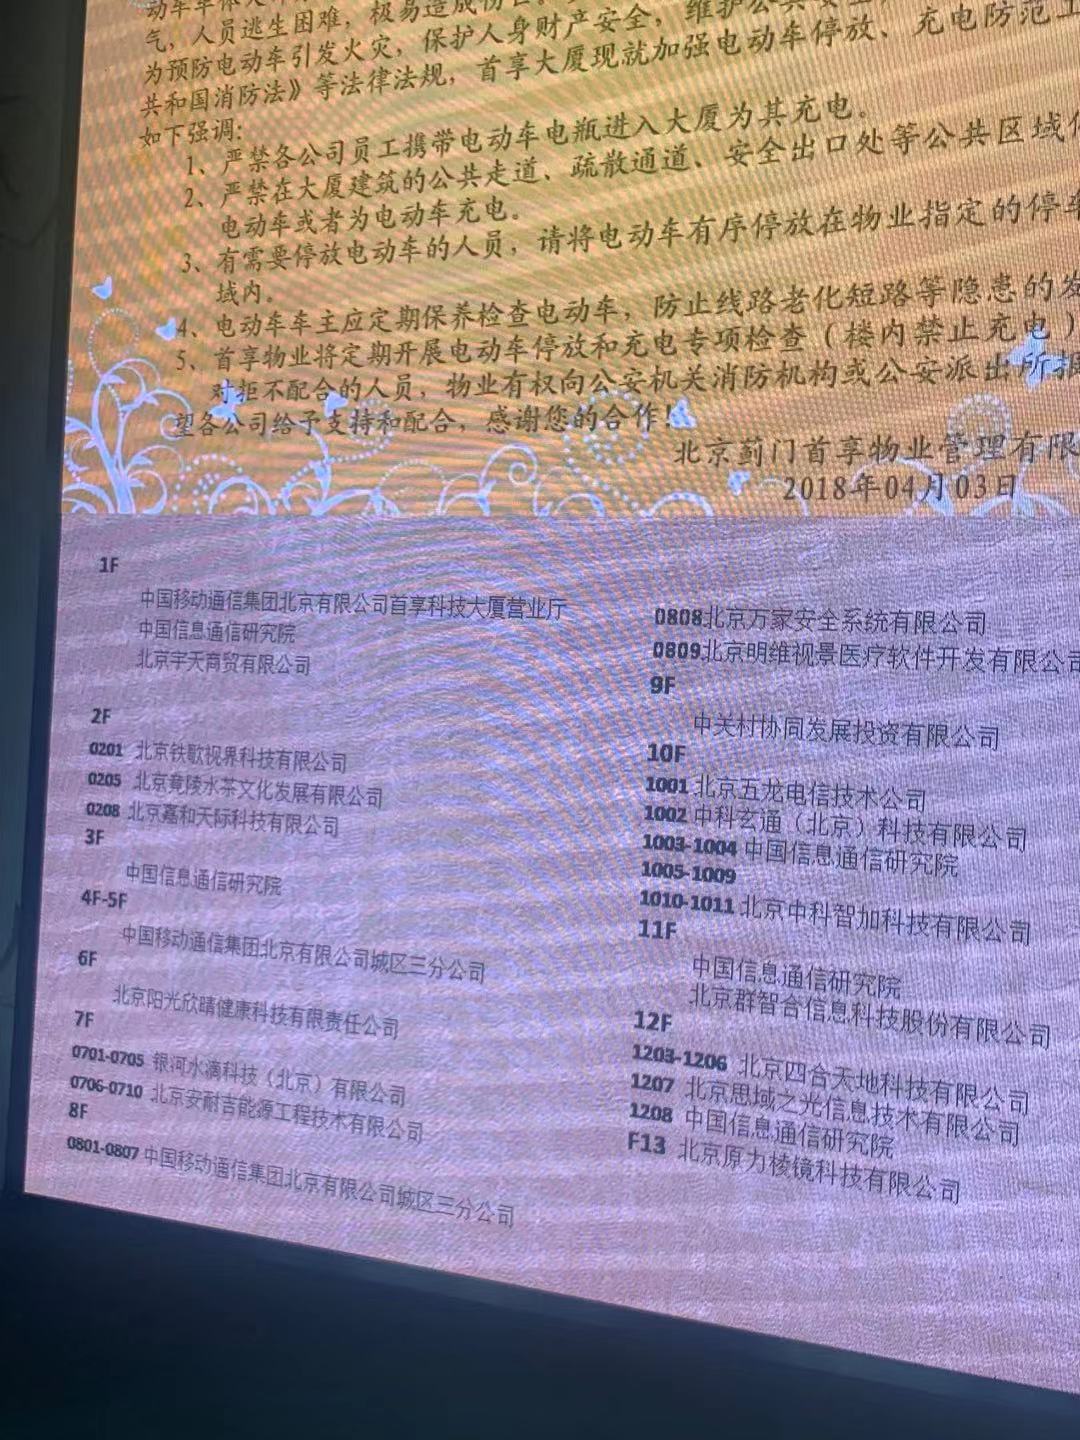 气，人员逃生困难，极易造成
为预防电动车引发火灾，保护人身财产安全，维护公共安全，
共和国消防法》等法律法规，首享大厦现就加强电动车停放、充电防范工
如下强调：
1、严禁各公司员工携带电动车电瓶进入大厦为其充电。
2、严禁在大厦建筑的公共走道、疏散通道、安全出口处等公共区域
电动车或者为电动车充电。
3、有需要停放电动车的人员，请将电动车有序停放在物业指定的停车
域内。
4、电动车车主应定期保养检查电动车，防止线路老化短路等隐患的发
5、首享物业将定期开展电动车停放和充电专项检查（楼内禁止充电）
对拒不配合的人员，物业有权向公安机关消防机构或公安派出所报
望各公司给予支持和配合，感谢您的合作！
北京蓟门首享物业管理有限
2018年04月03日
1F
中国移动通信集团北京有限公司首享科技大厦营业厅
中国信息通信研究院
北京宇天商贸有限公司
2F
0201 北京铁歌视界科技有限公司
0205 北京竟陵水茶文化发展有限公司
0208 北京嘉和天际科技有限公司
3F
中国信息通信研究院
4F-5F
中国移动通信集团北京有限公司城区三分公司
6F
北京阳光欣晴健康科技有限责任公司
7F
0701-0705 银河水滴科技（北京）有限公司
0706-0710 北京安耐吉能源工程技术有限公司
8F
0801-0807 中国移动通信集团北京有限公司城区三分公司
0808北京万家安全系统有限公司
0809北京明维视景医疗软件开发有限公司
9F
中关村协同发展投资有限公司
10F
1001 北京五龙电信技术公司
1002 中科玄通（北京）科技有限公司
1003-1004 中国信息通信研究院
1005-1009
1010-1011 北京中科智加科技有限公司
11F
中国信息通信研究院
北京群智合信息科技股份有限公司
12F
1203-1206 北京四合天地科技有限公司
1207 北京思域之光信息技术有限公司
1208 中国信息通信研究院
F13 北京原力棱镜科技有限公司